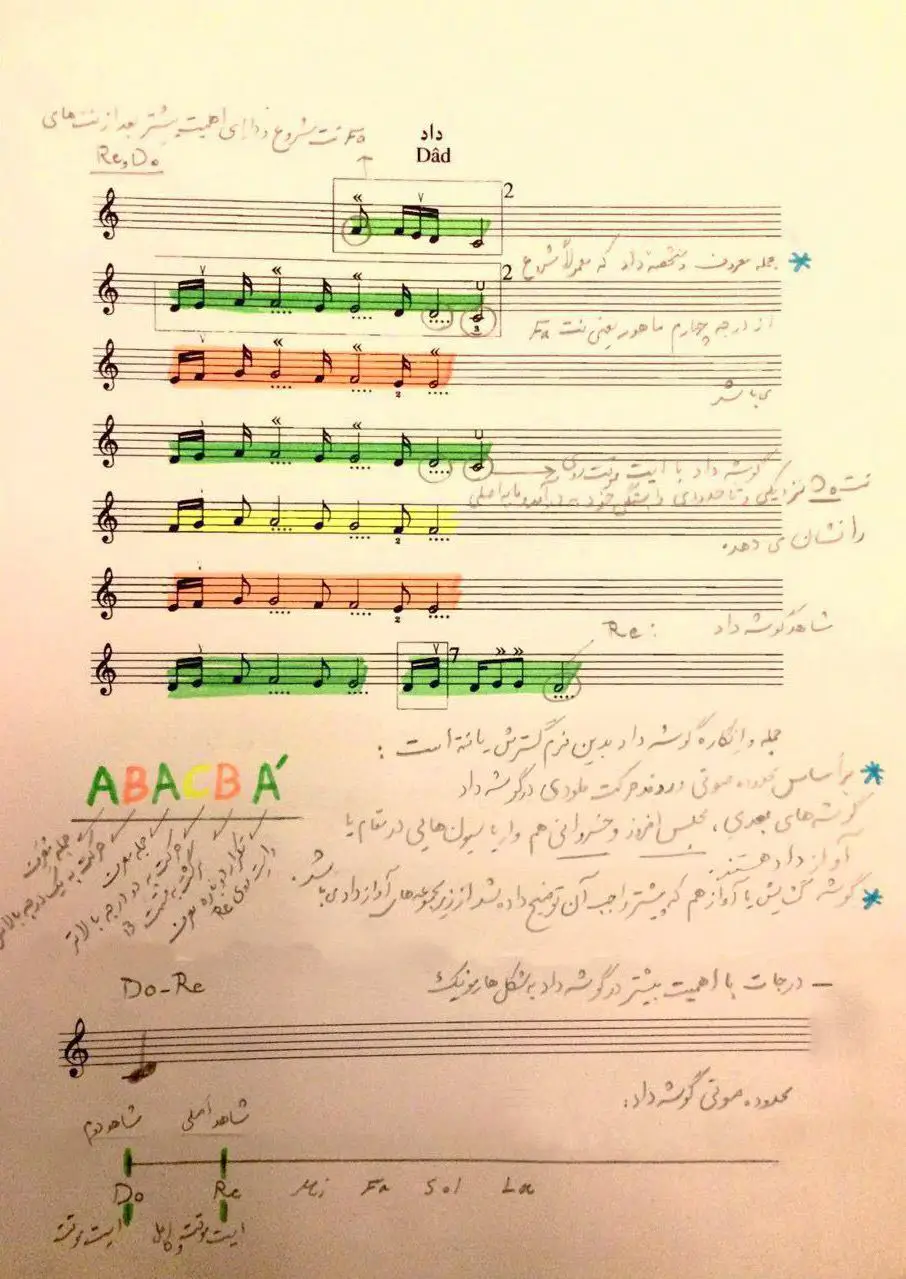 Fa نت شروع و دارای اهمیت بیشتر بعد از نت‌های
Re و Do
داد
Dâd
2
* جمله معروف و مشخصه داد که معمولاً شروع
2
از درجه چهارم ماهور یعنی نت Fa
3
می باشد
2
گوشه داد با ایست موقت روی
نت Do نزدیکی و تا حدودی وابستگی خود به درآمد و مایه اصلی
را نشان می دهد.
2
شاهد گوشه داد : Re
2
7
جمله و انگاره گوشه داد بدین فرم گسترش یافته است :
ABACBA´
* بر اساس محدوده صوتی و روند حرکت ملودی در گوشه داد
گوشه‌های بعدی ، مجلس افروز و خسروانی هم واریاسیون‌هایی در مقام یا
آواز داد هستند.
* گوشه گشایش یا آواز هم که پیشتر راجب آن توضیح داده شد از زیر مجموعه‌های آواز داد می باشد.
جمله معرف
حرکت به یک درجه بالاتر
جمله معرف
حرکت به دو درجه بالاتر
برگشت به قسمت B
تکرار دوباره معرف
و ایست روی Re
– درجات با اهمیت بیشتر در گوشه داد به شکل هارمونیک
Do-Re
محدوده صوتی گوشه داد:
شاهد دوم شاهد اصلی
Do Re Mi Fa Sol La
ایست موقت ایست موقت و کامل